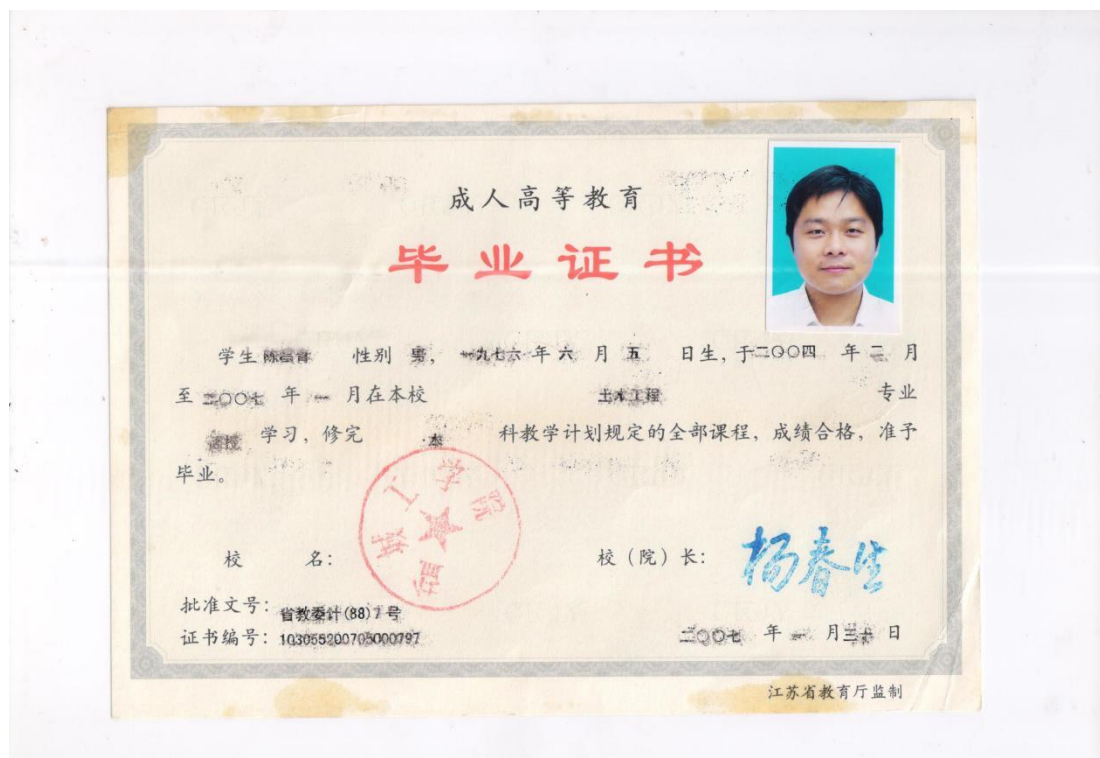 成人高等教育
毕业证书
学生 性别 男, 一九七六 年 六 月 五 日生, 于二〇〇四 年 二 月
至 二〇〇七 年 一 月在本校 土木工程 专业
函授 学习, 修完 本 科教学计划规定的全部课程, 成绩合格, 准予
毕业。
盐城工学院
校 名: 校(院)长: 杨春生
批准文号: 省教委计(88)7号
证书编号: 103055200705000797
二〇〇七 年 一 月 日
江苏省教育厅监制